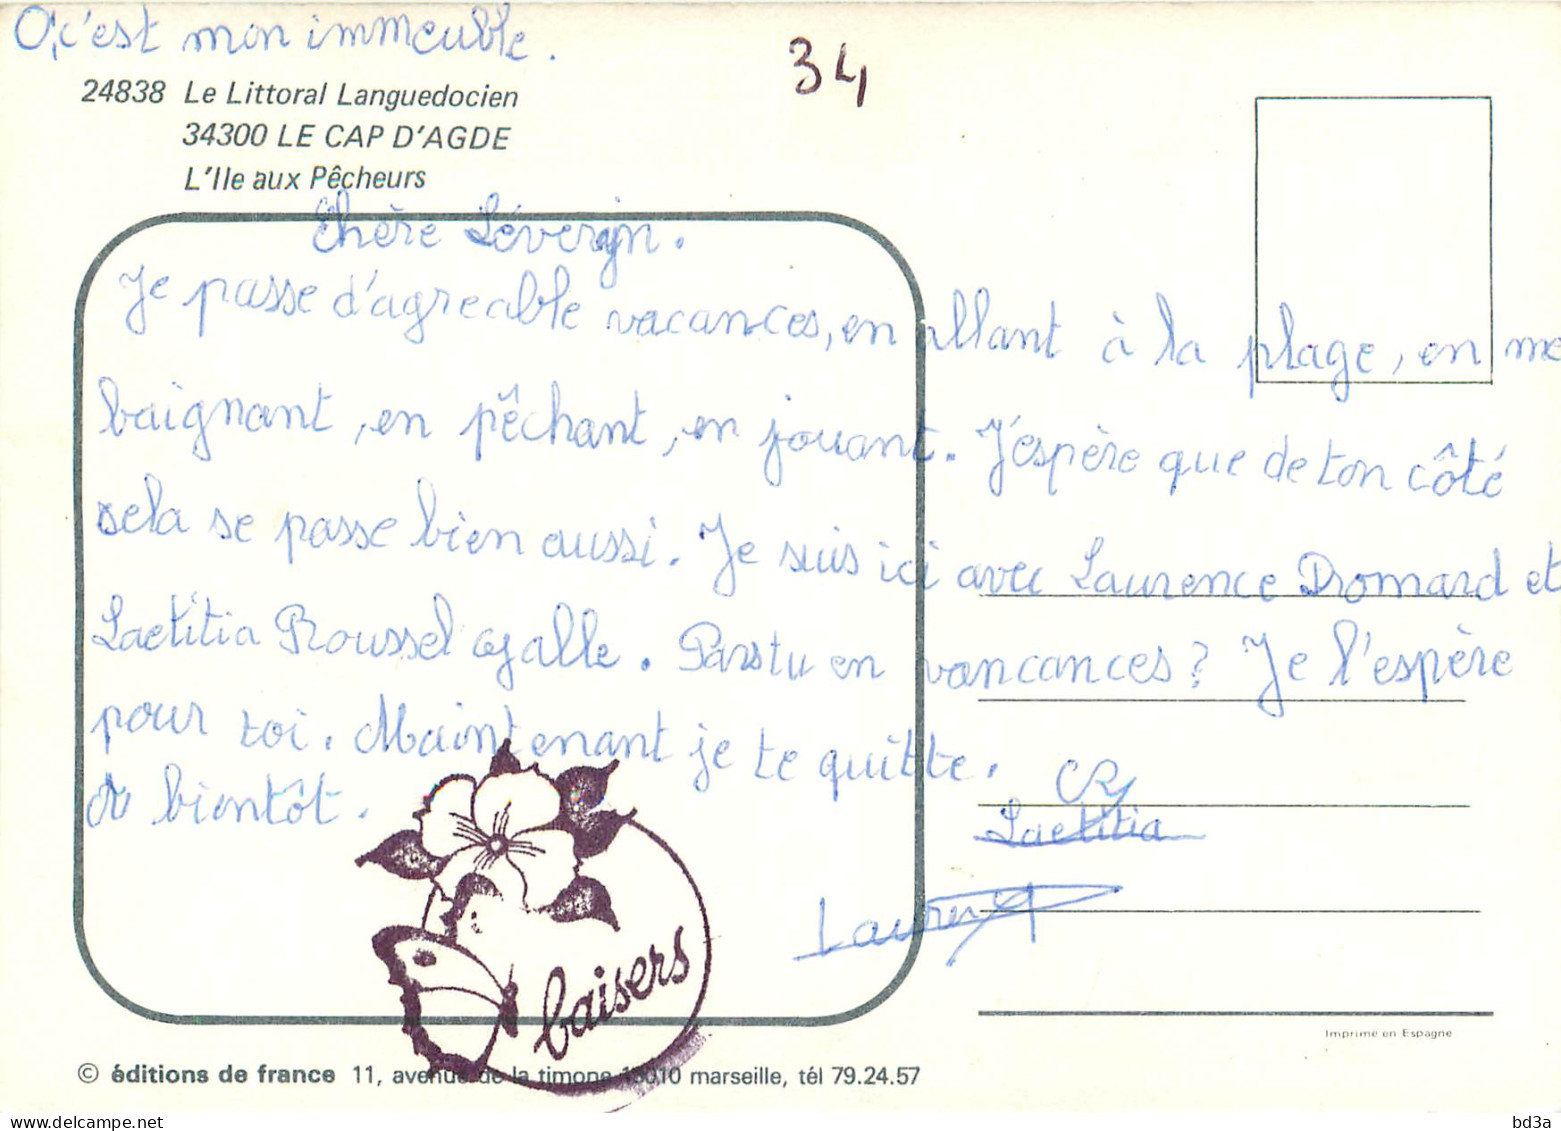 O,c'est mon immeuble.
34
24838 Le Littoral Languedocien
34300 LE CAP D'AGDE
L'Ile aux Pêcheurs
Chère Séverijn.
Je passe d'agreable vacances, en allant à la plage, en me
baignant, en pêchant, en jouant. J'éspère que de ton côté
sela se passe bien aussi. Je suis ici avec Laurence Dromard et
Laetitia Roussel galle. Parstu en vancances? Je l'espère
pour toi. Maintenant je te quitte.
A bientôt.
Laetitia
Laurence
baisers
Imprimé en Espagne
© éditions de france 11, avenue de la timone 13010 marseille, tél 79.24.57
www.delcampe.net
bd3a